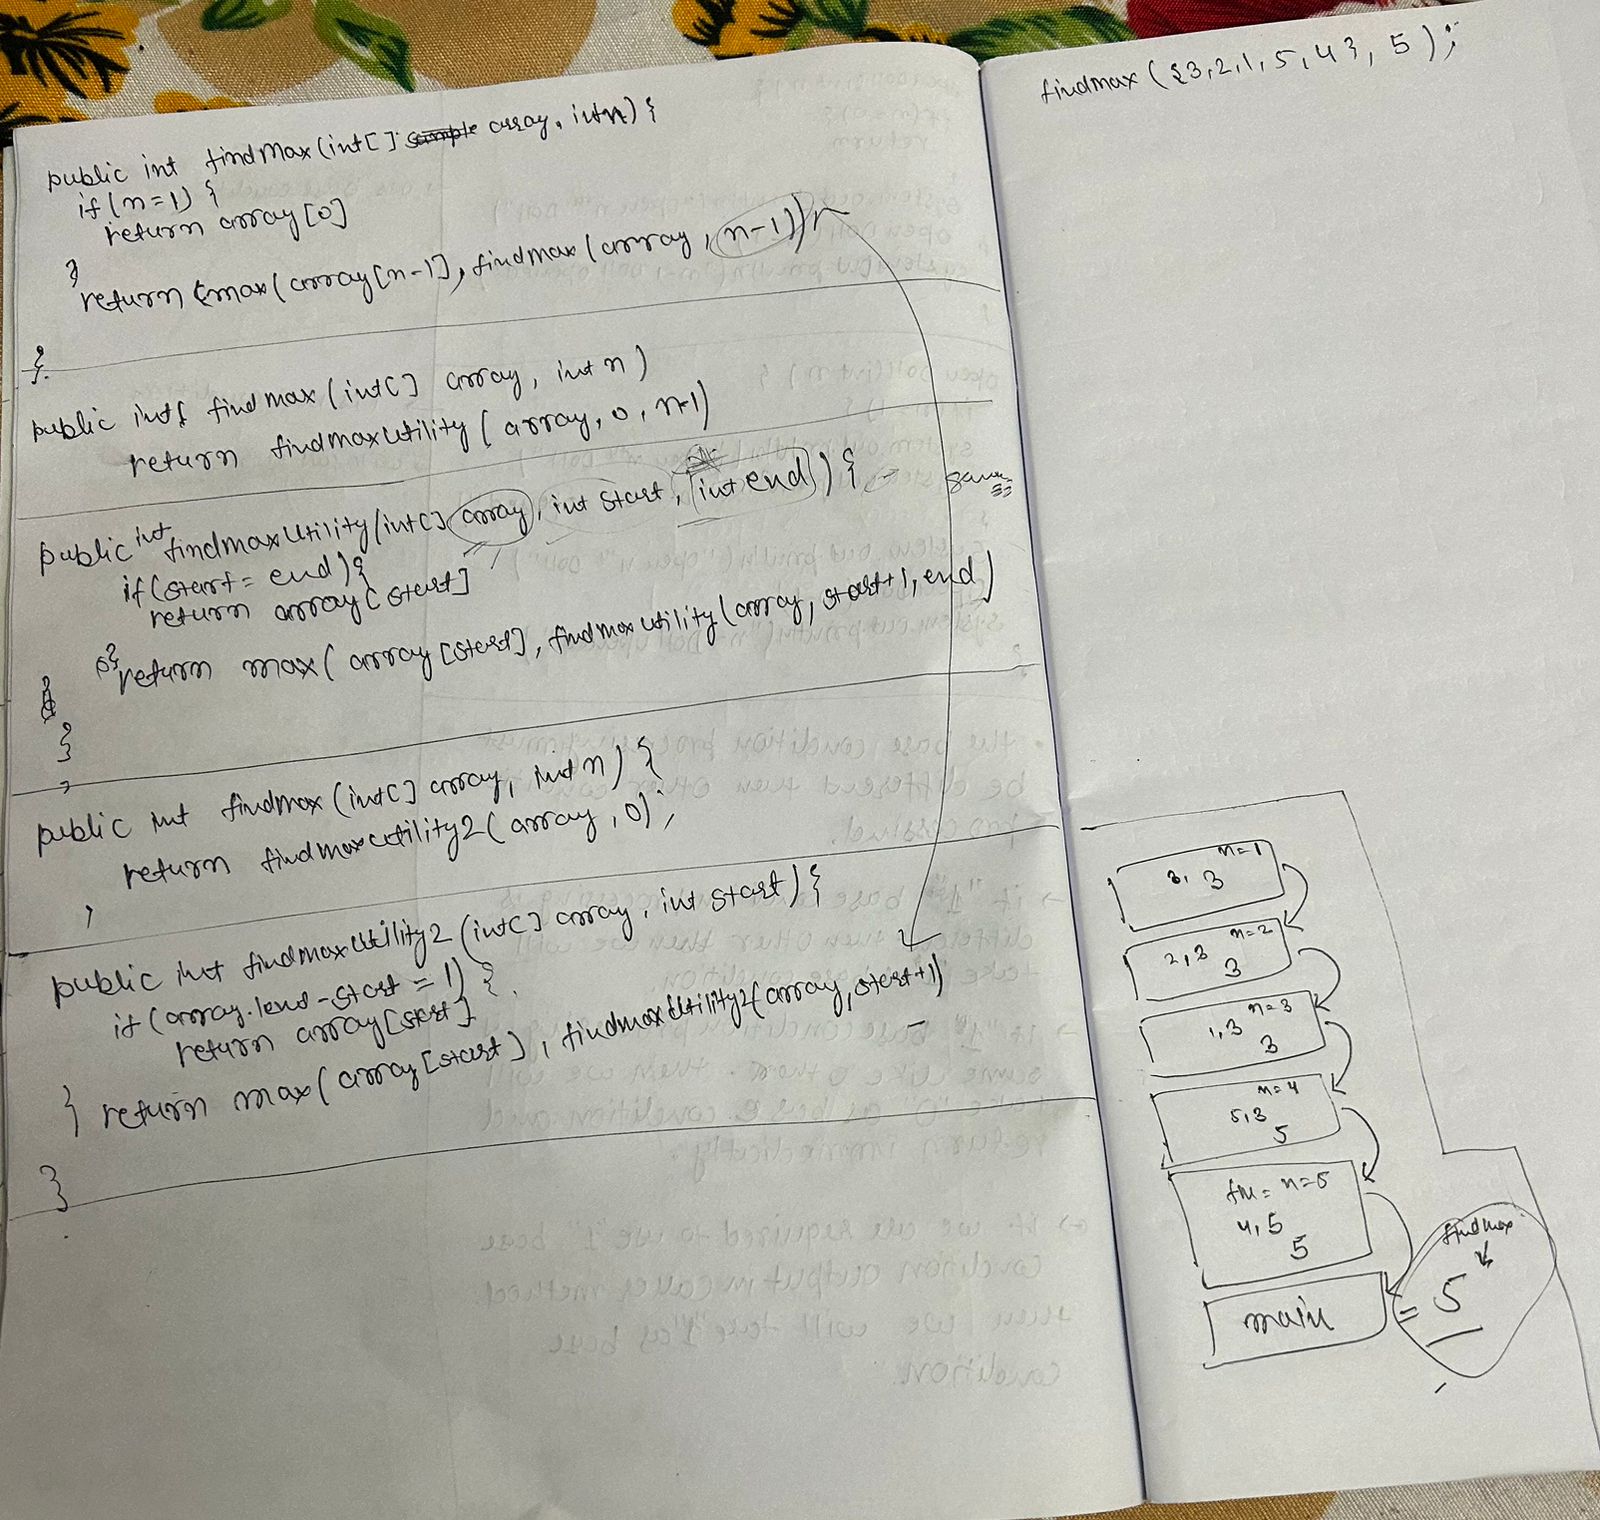 public int findMax(int[] array, int n) {
if(n=1) {
return array[0]
}
return max(array[n-1], findmax(array, n-1))
}
public int findmax(int[] array, int n)
return findmaxUtility(array, 0, n-1)
public int findmaxUtility(int[] array, int start, int end) {
same
if(start = end){
return array[start]
}
return max(array[start], findmaxUtility(array, start+1, end)
}
public int findmax(int[] array, int n) {
return findmaxUtility2(array, 0);
}
public int findmaxUtility2(int[] array, int start) {
if(array.lend-start = 1) {
return array[start]
} return max(array[start], findmaxUtility2(array, start+1)
}
findmax({3,2,1,5,4}, 5);
n=1
3, 3
n=2
2,3
3
n=3
1,3
3
n=4
5,3
5
fm = n=5
4,5
5
main
findmax
= 5